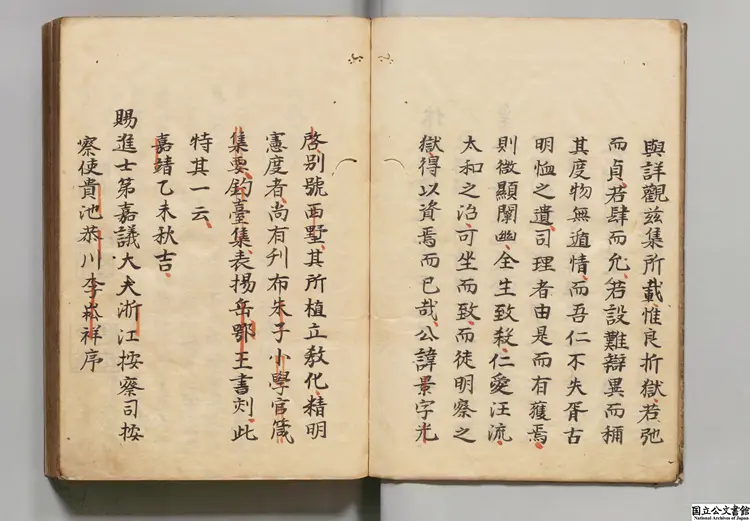 與詳觀玆集所載惟良折獄若弛
而貞若肆而允若設難辯異而稱
其度物無遁情而吾仁不失胥古
明恤之遺司理者由是而有獲焉
則微顯闡幽全生致殺仁愛汪流
太和之治可坐而致而徒明察之
獄得以資焉而已哉公諱景字光
啓別號西墅其所植立敎化精明
憲度者尚有刋布朱子小學官箴
集要釣臺集表揚岳鄂王書刻此
特其一云
嘉靖乙未秋吉
賜進士第嘉議大夫浙江按察司按
察使貴池恭川李崧祥序
国立公文書館
National Archives of Japan